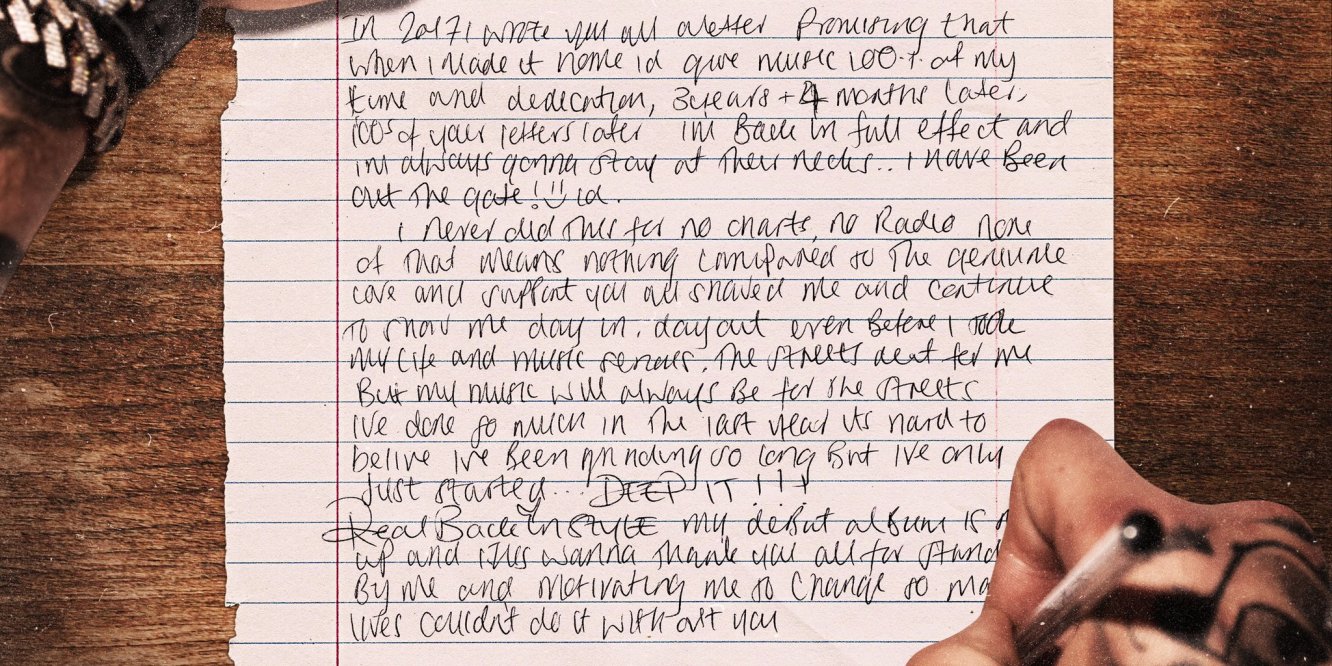 In 2017 I wrote you all a letter Promising that
when I made it home id give music 100% of my
time and dedication, 3years + 4 months later,
100s of your letters later im Back in full effect and
im always gonna stay at their necks.. I have Been
out the gate! id.
I never did this for no charts, no Radio none
of that means nothing compared to the genuine
love and support you all showed me and continue
to show me day in, day out even Before I took
my life and music serious. The streets dont for me
But my music will always Be for the streets
Ive done so much in the last year its hard to
belive Ive Been grinding so long But Ive only
Just started... DEEP IT !!!
Real Back In STYLE my debut album is
up and I Just wanna thank you all for stand
By me and motivating me to Change so
lives couldnt do it with-out you